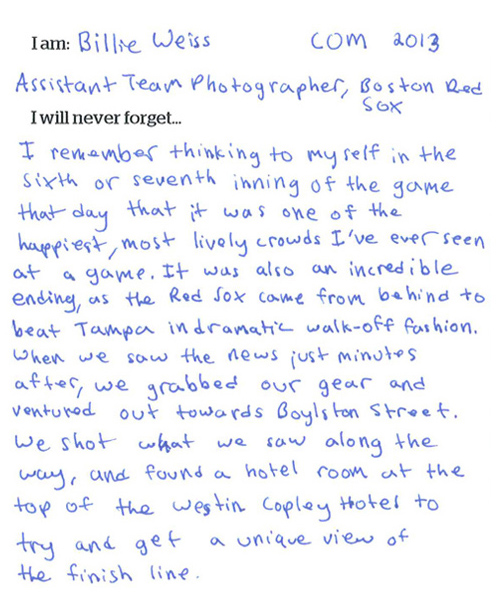 I am: Billie Weiss COM 2013
Assistant Team Photographer, Boston Red
Sox
I will never forget...
I remember thinking to myself in the
sixth or seventh inning of the game
that day that it was one of the
happiest, most lively crowds I've ever seen
at a game. It was also an incredible
ending, as the Red Sox came from behind to
beat Tampa in dramatic walk-off fashion.
When we saw the news just minutes
after, we grabbed our gear and
ventured out towards Boylston Street.
We shot what we saw along the
way, and found a hotel room at the
top of the Westin Copley Hotel to
try and get a unique view of
the finish line.